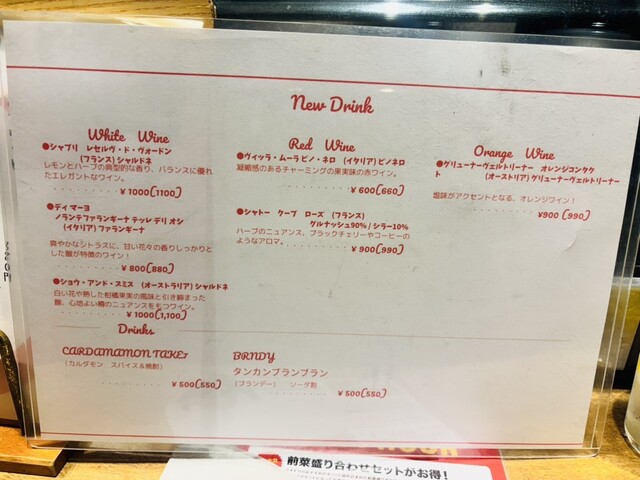 New Drink
White Wine
●シャブリ レセルヴ・ド・ヴォードン
(フランス) シャルドネ
レモンとハーブの典型的な香り、バランスに優れ
たエレガントなワイン。
¥1000(1100)
●ディ マーヨ
ノランテファランギーナ テッレ デリ オシ
(イタリア) ファランギーナ
爽やかなシトラスに、甘い花々の香りしっかりと
した酸が特徴のワイン!
¥800(880)
●ショウ・アンド・スミス (オーストラリア) シャルドネ
白い花や熟した柑橘果実の風味と引き締まった
酸、心地よい樽のニュアンスをもつワイン。
¥1000(1,100)
Red Wine
●ヴィッラ・ムーラ ピノ・ネロ (イタリア) ピノネロ
凝縮感のあるチャーミングの果実味の赤ワイン。
¥600(660)
●シャトー ケープ ローズ (フランス)
グルナッシュ90% / シラー10%
ハーブのニュアンス、ブラックチェリーやコーヒーの
ようなアロマ。
¥900(990)
Orange Wine
●グリューナーヴェルトリーナー オレンジコンタク
ト (オーストリア) グリューナーヴェルトリーナー
塩味がアクセントとなる、オレンジワイン!
¥900 (990)
Drinks
CARDAMAMON TAKE7
(カルダモン スパイス&焼酎)
¥500(550)
BRNDY
タンカンブランブラン
(ブランデー) ソーダ割
¥500(550)
320円
前菜盛り合わせセットがお得!